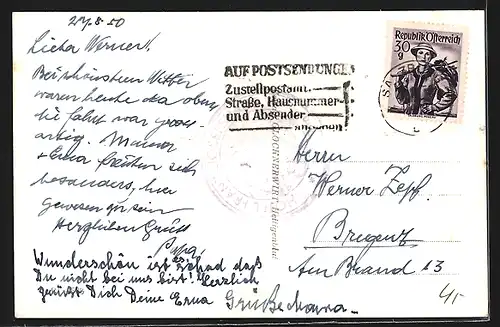 24.8.50
Lieber Werner!
Bei schönstem Wetter
waren heute da oben,
die Fahrt war gross-
artig. Mama
+ Erna freuten sich
besonders, hier
gewesen zu sein
Herzlichen Gruß
Papa
Wunderschön ist es schad daß
Du nicht bei uns bist! Herzlich
grüßt Dich Deine Erna
Grüße Mama.
AUF POSTSENDUNGEN
Zustellpostamt,
Straße, Hausnummer
und Absender
angeben
Republik Österreich
30
g
GLOCKNERWIRT, Heiligenblut
Herrn
Werner Zepf
Bregenz
Am Brand 13
4,-